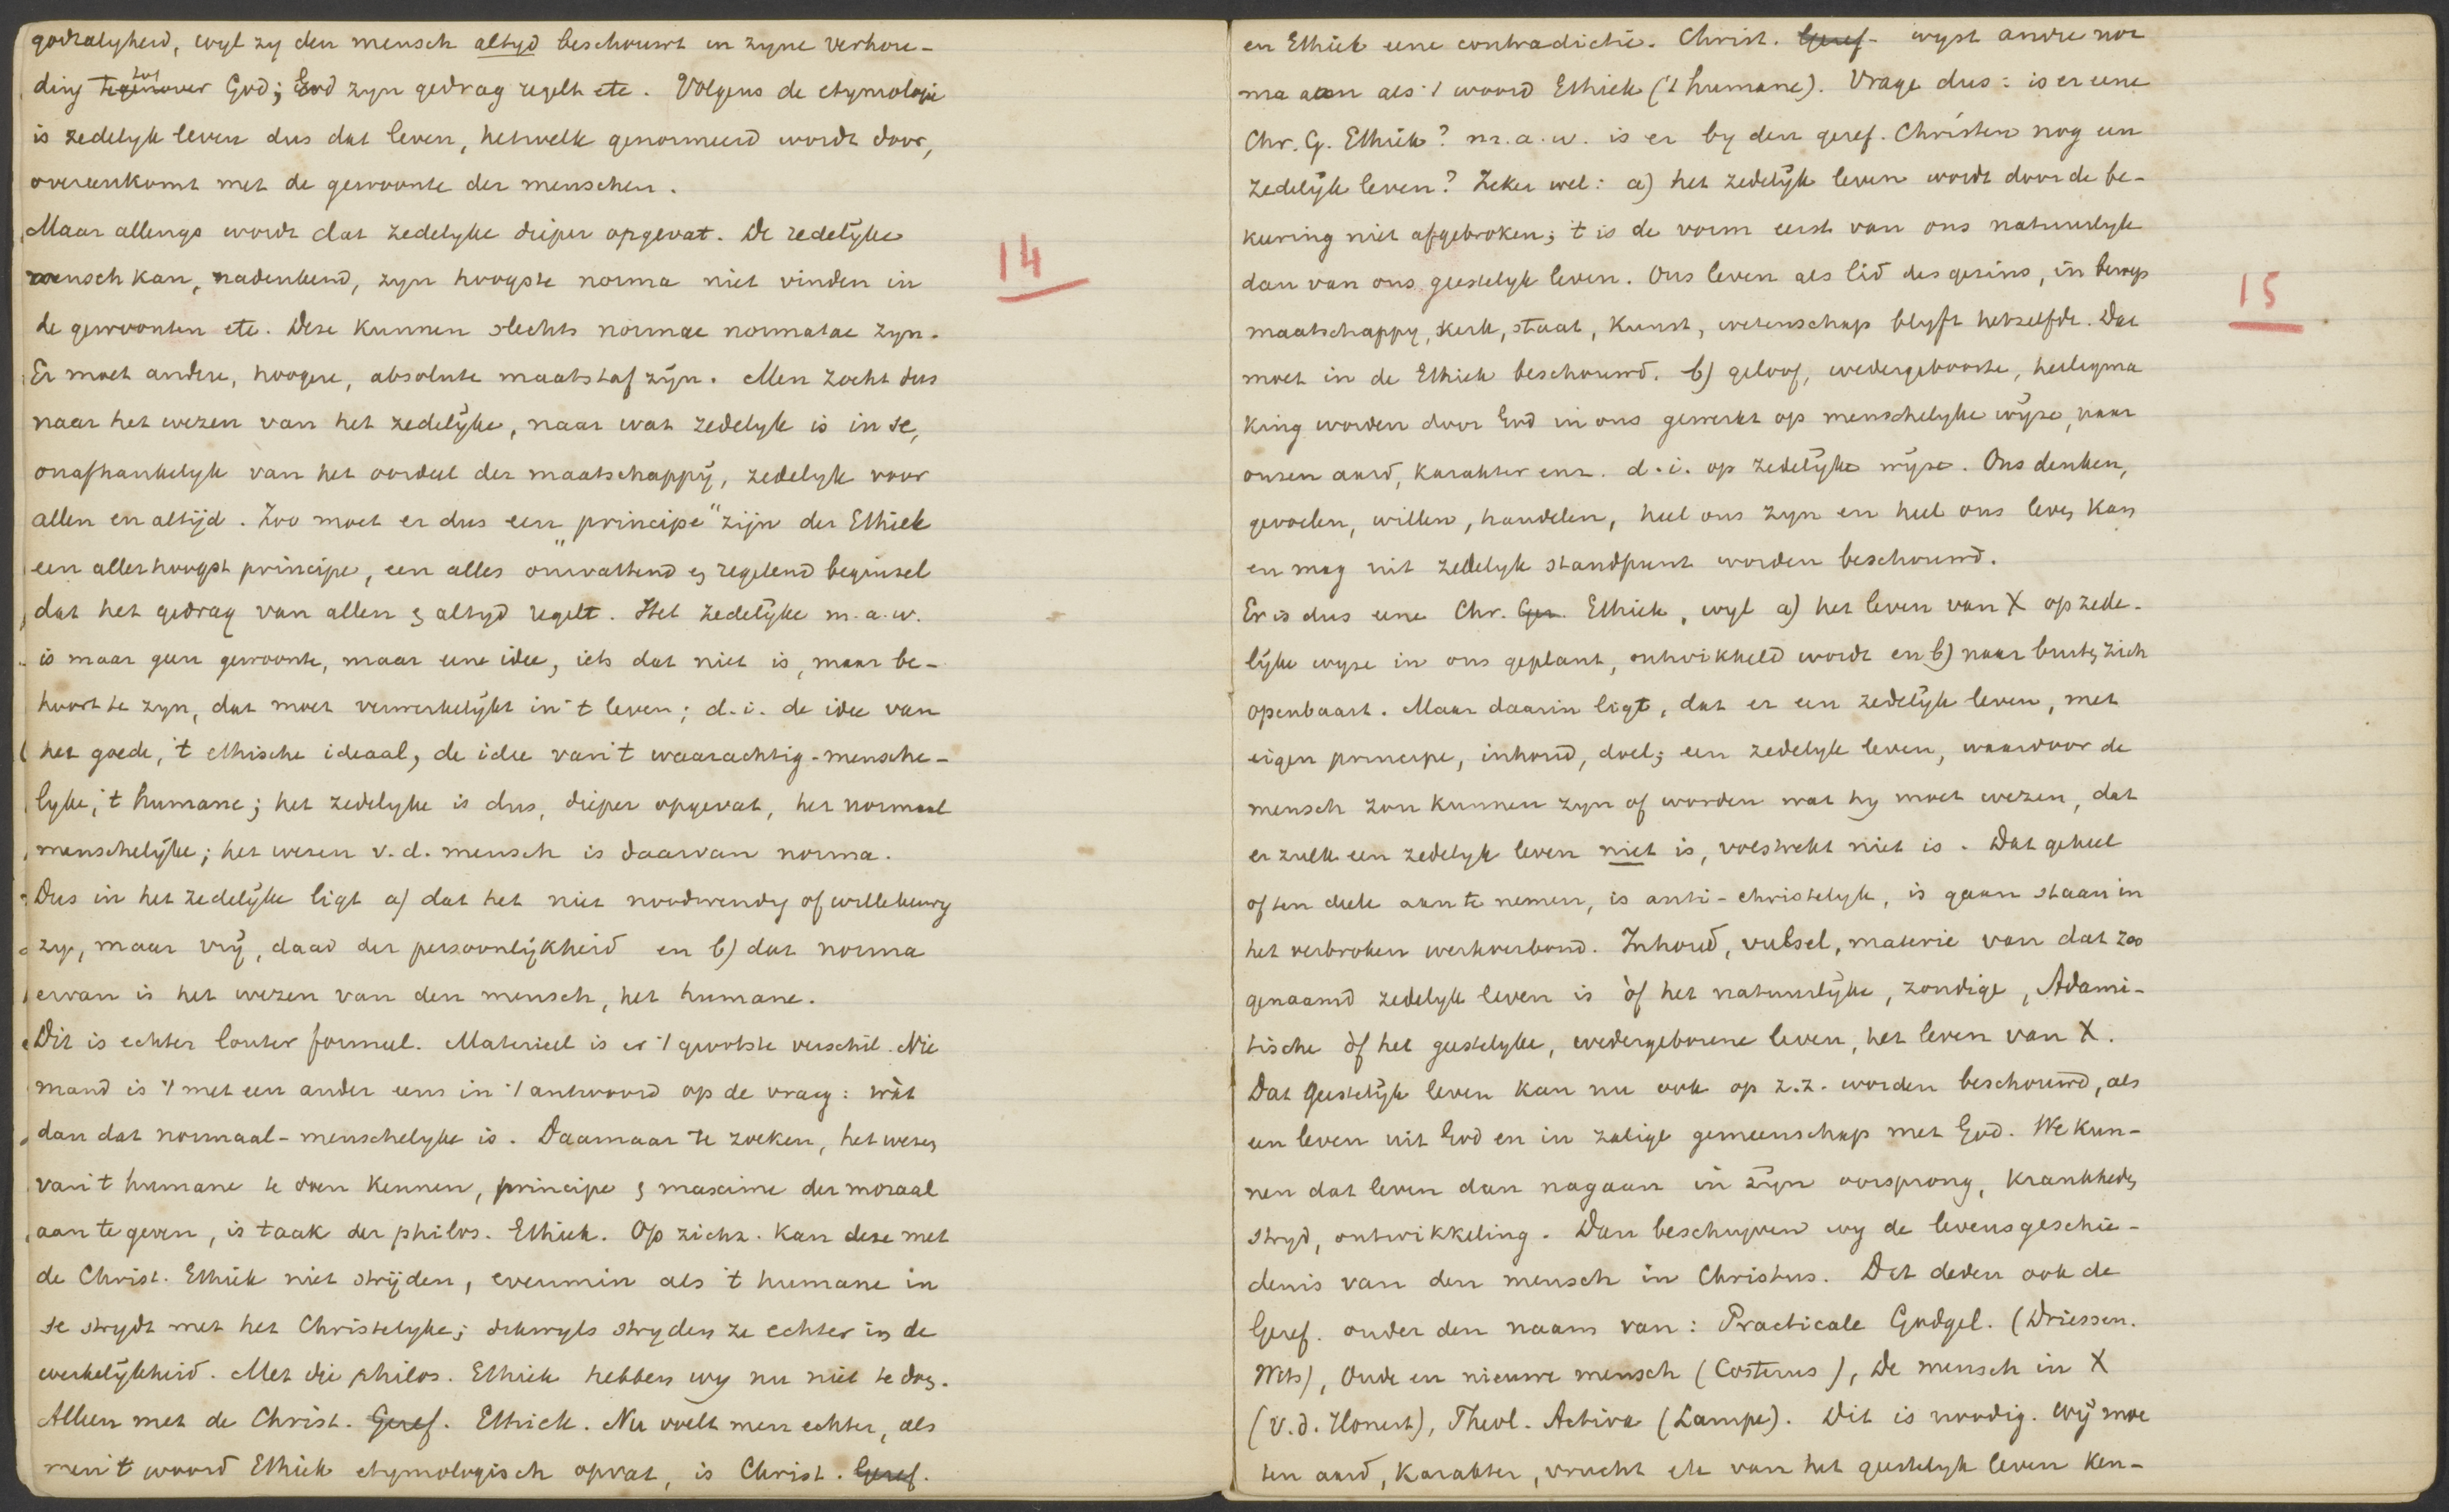 godzalygheid, wyl zy den mensch altyd beschouwt in zyne verhou-
ding tegenover tot God; God zyn gedrag regelt etc. Volgens de etymologie
is zedelyk leven dus dat leven, hetwelk genormeerd wordt door,
overeenkomt met de gewoonte der menschen.
Maar allengs wordt dat zedelyke dieper opgevat. De redelijke
mensch kan, nadenkend, zyn hoogste norma niet vinden in
de gewoonten etc. Deze kunnen slechts normae normatae zyn.
Er moet andere, hoogere, absolute maatstaf zijn. Men zocht dus
naar het wezen van het zedelijke, naar wat zedelyk is in se,
onafhankelyk van het oordeel der maatschappij, zedelyk voor
allen en altijd. Zoo moet er dus een "principe" zijn der Ethiek
een allerhoogst principe, een alles omvattend en regelend beginsel
dat het gedrag van allen en altyd regelt. Het zedelijke m.a.w.
is maar geen gewoonte, maar eene idee, iets dat niet is, maar be-
hoort te zyn, dat moet verwerkelijkt in 't leven; d.i. de idee van
het goede, 't ethische ideaal, de idee van 't waarachtig-mensche-
lyke, 't humane; het zedelyke is dus, dieper opgevat, het normaal
menschelijke; het wezen v.d. mensch is daarvan norma.
Dus in het zedelijke ligt a) dat het niet noodwendig of willekeurig
zy, maar vrij, daad der persoonlijkheid en b) dat norma
ervan is het wezen van den mensch, het humane.
Dit is echter louter formeel. Materieel is er 't grootste verschil. Nie
mand is 't met een ander eens in 't antwoord op de vraag: wàt
dan dat normaal-menschelyke is. Daarnaar te zoeken, het wezen
van 't humane te doen kennen, principe en maxime der moraal
aan te geven, is taak der philos. Ethiek. Op zichz. kan deze met
de Christ. Ethiek niet strijden, evenmin als 't humane in
se strydt met het Christelyke; dikwyls stryden ze echter in de
werkelijkheid. Met die philos. Ethiek hebben wy nu niet te doen.
Alleen met de Christ. Geref. Ethiek. Nu voelt men echter, als
men 't woord Ethiek etymologisch opvat, is Christ. Geref.
14
en Ethiek eene contradictie. Christ. Geref- wyst andre nor
ma aan als 't woord Ethiek ('t humane). Vrage dus: is er eene
Chr. G. Ethiek? m.a.w. is er by den geref. Christen nog een
zedelijk leven? Zeker wel: a) het zedelijk leven wordt door de be-
keering niet afgebroken; 't is de vorm eerst van ons natuurlyk
dan van ons geestelyk leven. Ons leven als lid des gezins, in beroep
maatschappy, kerk, staat, kunst, wetenschap blyft hetzelfde. Dat
moet in de Ethiek beschouwd. b) geloof, wedergeboorte, heiligma
king worden door God in ons gewerkt op menschelyke wijze, naar
onzen aard, karakter enz. d.i. op zedelijke wijze. Ons denken,
gevoelen, willen, handelen, heel ons zyn en heel ons leven kan
en mag uit zedelyk standpunt worden beschouwd.
Er is dus eene Chr. Ger. Ethiek, wyl a) het leven van X op zede-
lijke wyze in ons geplant, ontwikkeld wordt en b) naar buiten zich
openbaart. Maar daarin ligt, dat er een zedelijk leven, met
eigen principe, inhoud, doel; een zedelyk leven, waardoor de
mensch zou kunnen zyn of worden wat hy moet wezen, dat
er zulk een zedelyk leven niet is, volstrekt niet is. Dat geheel
of ten deele aan te nemen, is anti-christelyk, is gaan staan in
het verbroken werkverbond. Inhoud, vulsel, materie van dat zoo
genaamd zedelyk leven is òf het natuurlijke, zondige, Adami-
tische òf het geestelyke, wedergeborene leven, het leven van X.
Dat geestelijk leven kan nu ook op z.z. worden beschouwd, als
een leven uit God en in zalige gemeenschap met God. We kun-
nen dat leven dan nagaan in zijn oorsprong, krankheden,
stryd, ontwikkeling. Dan beschryven wy de levensgeschie-
denis van den mensch in Christus. Dat deden ook de
Geref. onder den naam van: Practicale Godgel. (Driessen.
Wits), Oude en nieuwe mensch (Costerus), De mensch in X
(v.d. Honert), Theol. Activa (Lampe). Dit is noodig. Wij moe
ten aard, karakter, vrucht etc van het geestelyk leven ken-
15